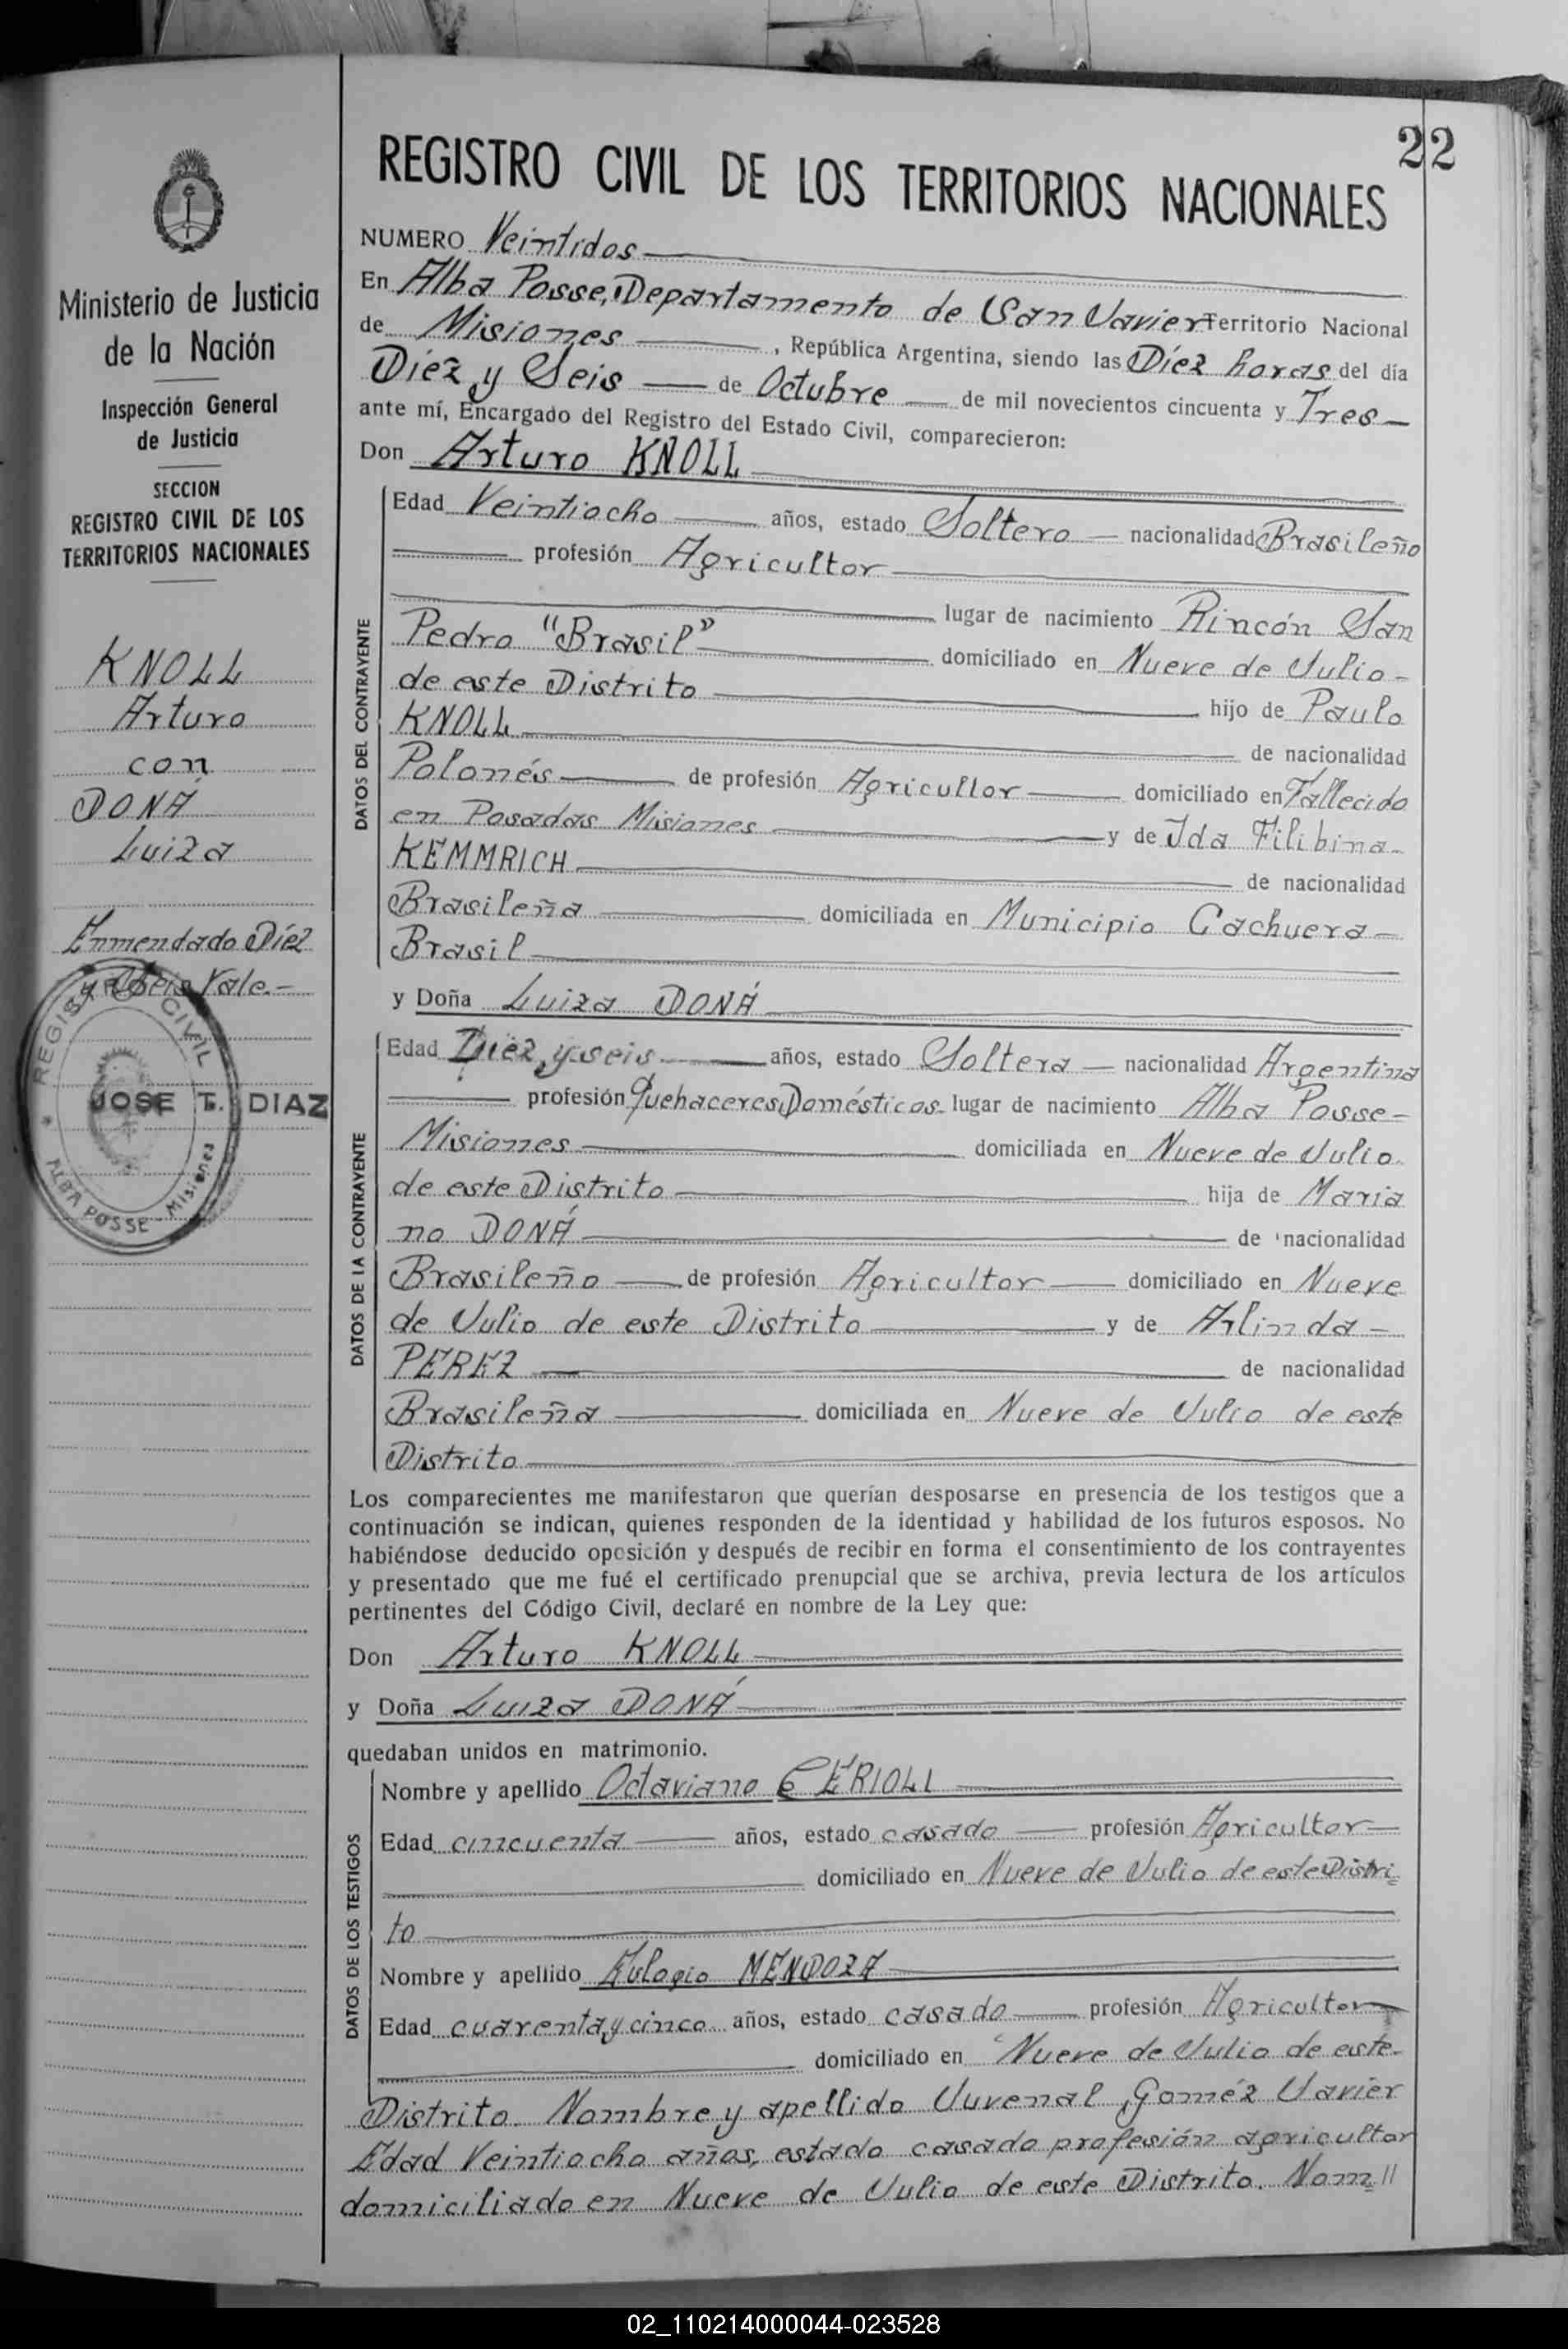 22
REGISTRO CIVIL DE LOS TERRITORIOS NACIONALES
Ministerio de Justicia
de la Nación
Inspección General
de Justicia
SECCION
REGISTRO CIVIL DE LOS
TERRITORIOS NACIONALES
KNOLL
Arturo
con
DONÁ
Luiza
Enmendado Diéz
y Seis Vale.-
REGISTRO CIVIL
JOSE T. DIAZ
ALBA POSSE - Misiones
NUMERO Veintidos
En Alba Posse, Departamento de San Javier Territorio Nacional
de Misiones , República Argentina, siendo las Diéz horas del día
Diéz y Seis de Octubre de mil novecientos cincuenta y Tres
ante mí, Encargado del Registro del Estado Civil, comparecieron:
Don Arturo KNOLL
DATOS DEL CONTRAYENTE
Edad Veintiocho años, estado Soltero nacionalidad Brasileño
profesión Agricultor
lugar de nacimiento Rincón San
Pedro "Brasil" domiciliado en Nueve de Julio
de este Distrito hijo de Paulo
KNOLL de nacionalidad
Polonés de profesión Agricultor domiciliado en Fallecido
en Posadas Misiones y de Ida Filibina
KEMMRICH de nacionalidad
Brasileña domiciliada en Municipio Cachuera
Brasil
y Doña Luiza DONÁ
DATOS DE LA CONTRAYENTE
Edad Diéz y seis años, estado Soltera nacionalidad Argentina
profesión Quehaceres Domésticos lugar de nacimiento Alba Posse
Misiones domiciliada en Nueve de Julio
de este Distrito hija de Maria
no DONÁ de nacionalidad
Brasileño de profesión Agricultor domiciliado en Nueve
de Julio de este Distrito y de Arlinda
PEREZ de nacionalidad
Brasileña domiciliada en Nueve de Julio de este
Distrito
Los comparecientes me manifestaron que querían desposarse en presencia de los testigos que a
continuación se indican, quienes responden de la identidad y habilidad de los futuros esposos. No
habiéndose deducido oposición y después de recibir en forma el consentimiento de los contrayentes
y presentado que me fué el certificado prenupcial que se archiva, previa lectura de los artículos
pertinentes del Código Civil, declaré en nombre de la Ley que:
Don Arturo KNOLL
y Doña Luiza DONÁ
quedaban unidos en matrimonio.
DATOS DE LOS TESTIGOS
Nombre y apellido Octaviano CERIOLI
Edad cincuenta años, estado casado profesión Agricultor
domiciliado en Nueve de Julio de este Distri
to
Nombre y apellido Eulogio MENDOZA
Edad cuarenta y cinco años, estado casado profesión Agricultor
domiciliado en Nueve de Julio de este
Distrito. Nombre y apellido Juvenal Goméz Javier
Edad Veintiocho años, estado casado profesión agricultor
domiciliado en Nueve de Julio de este Distrito. Nom//
02_110214000044-023528